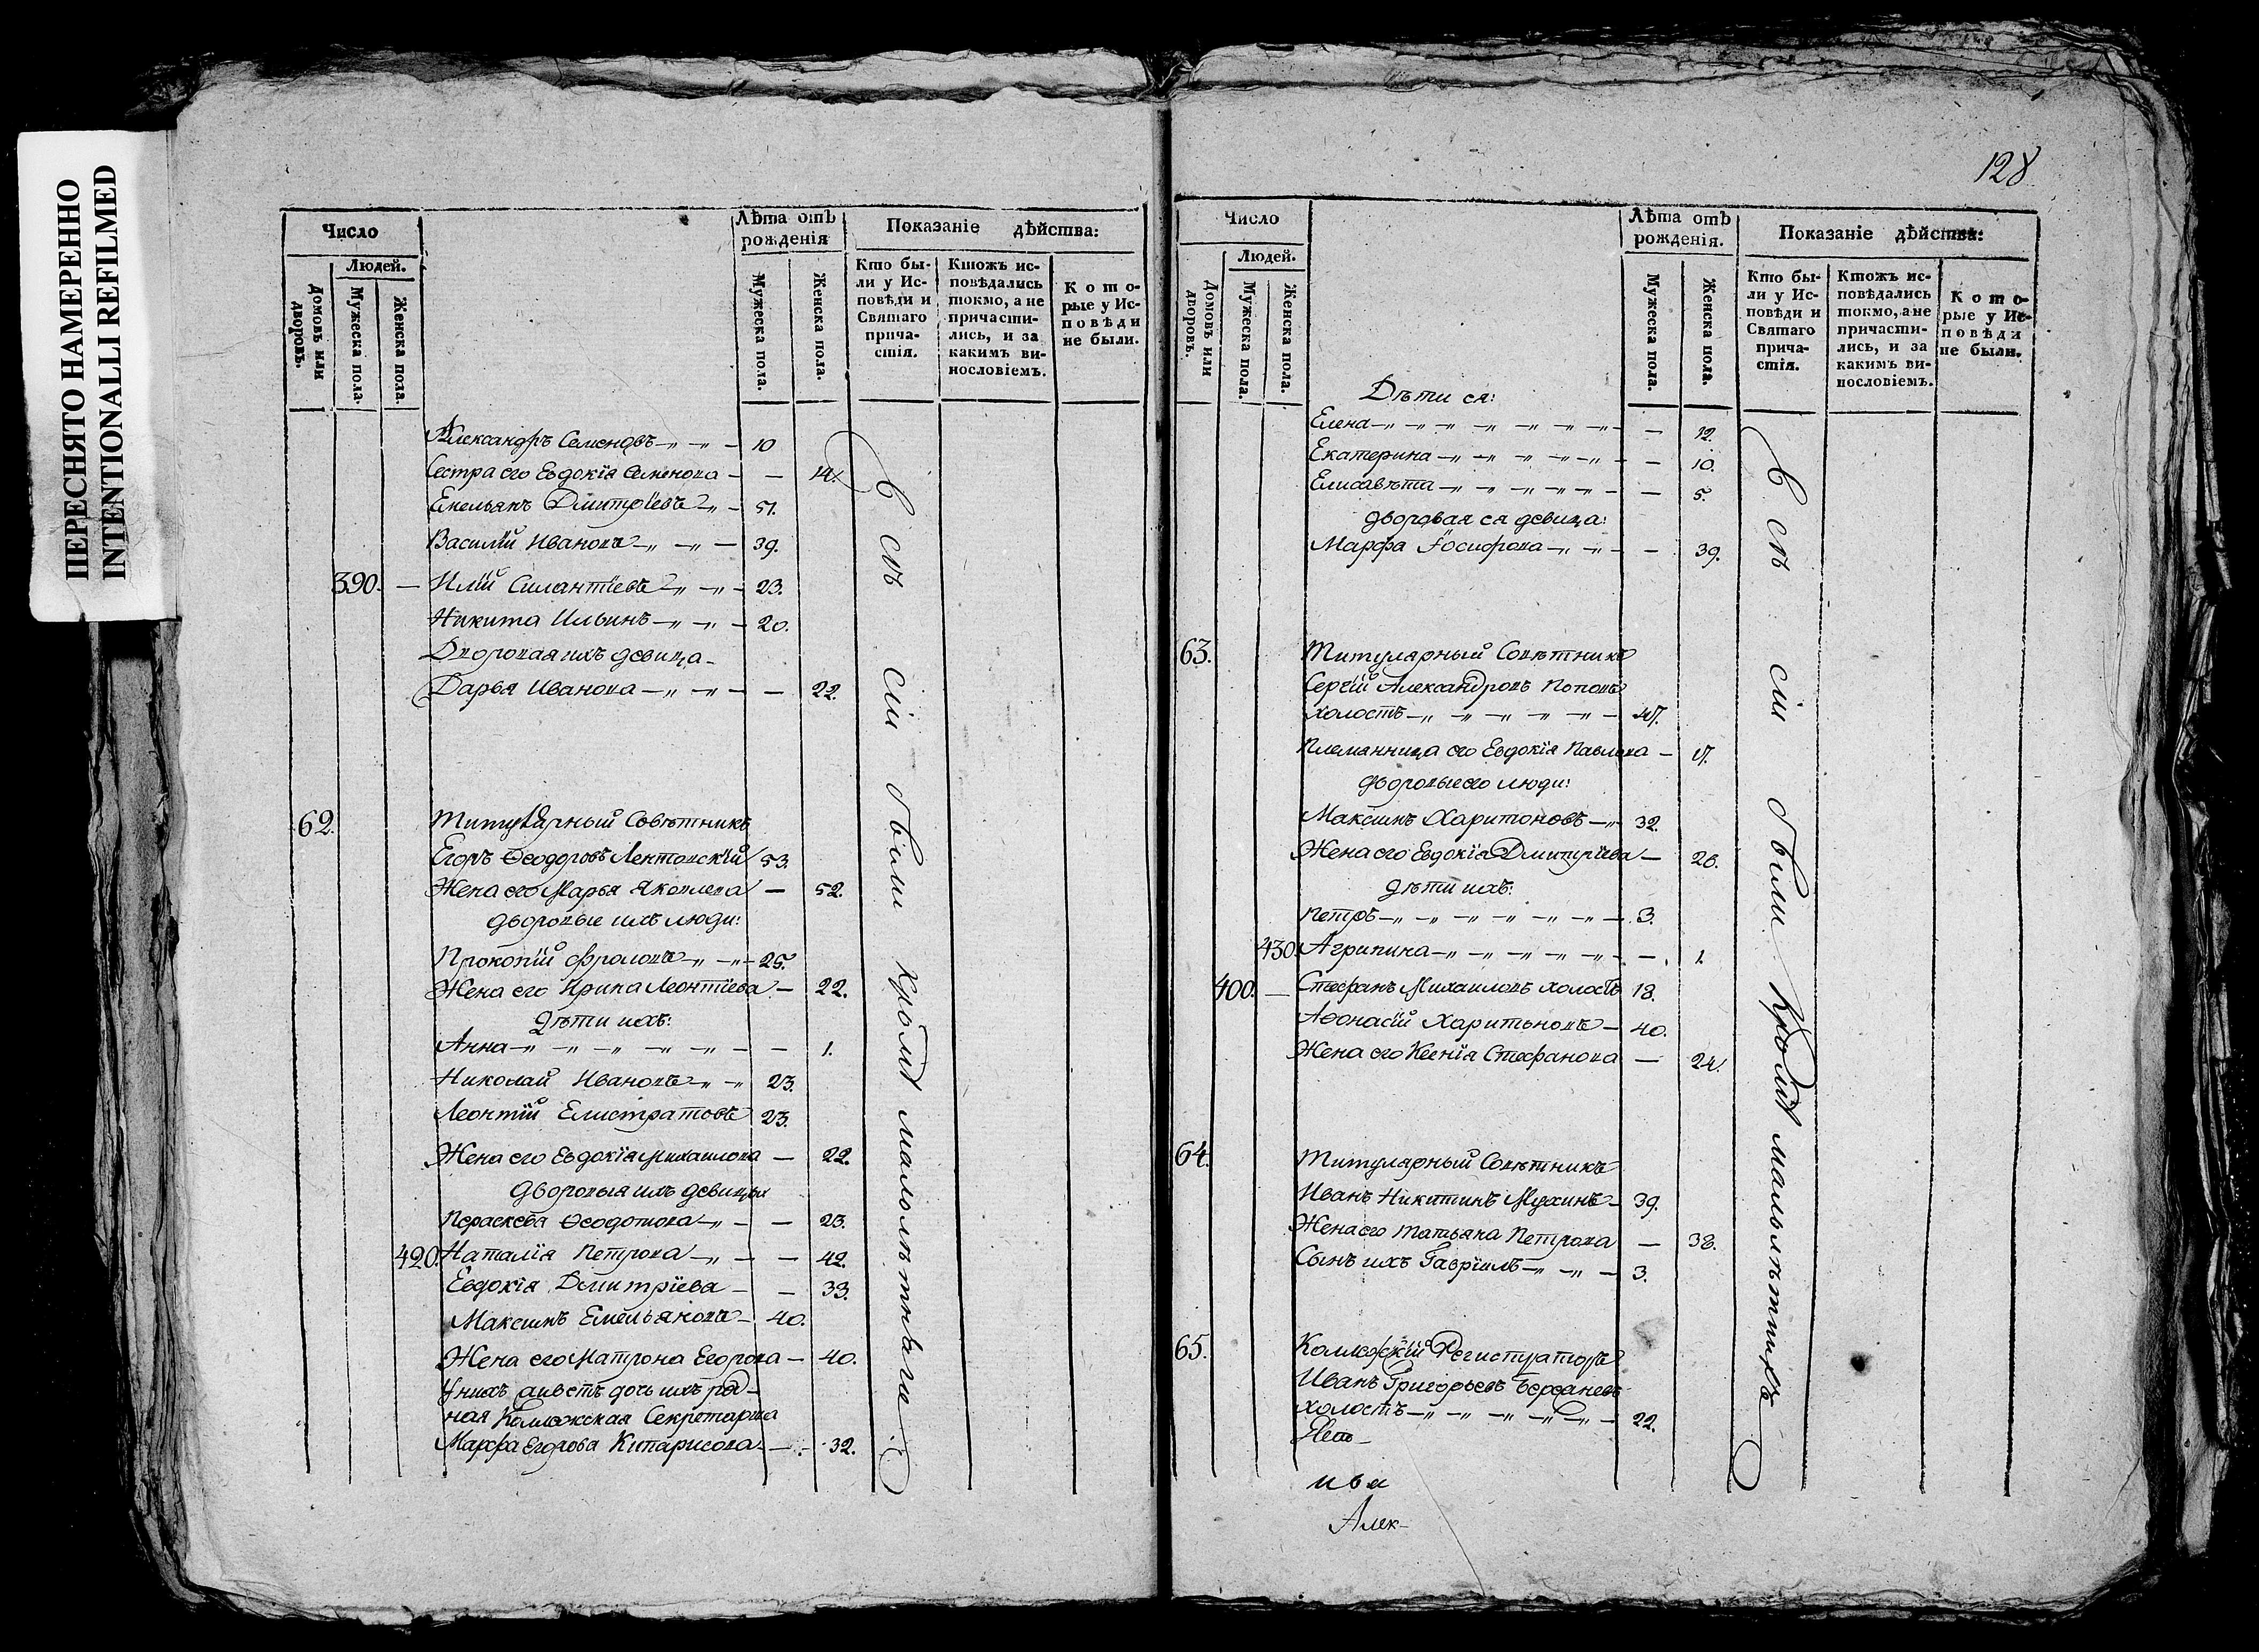 ПЕРЕСНЯТО НАМЕРЕННО
INTENTIONALLI REFILMED
Число
Людей.
Домовъ или дворовъ.
Мужеска пола.
Женска пола.
Лѣта отъ рожденія
Мужеска пола.
Женска пола.
Показаніе дѣйства:
Кто были у Исповѣди и Святаго причастія.
Ктожъ исповѣдались токмо, а не причастились, и за какимъ винословіемъ.
Которые у Исповѣди не были.
Александръ Семеновъ 10
Сестра его Евдокія Семенова — 14.
Емельянъ Дмитріевъ 51.
Василій Ивановъ 39.
390. — Илій Силантіевъ 23.
Никита Ильинъ 20.
Дворовая ихъ девица
Дарья Иванова — 22.
62. Титулярный Совѣтникъ
Егоръ Ѳеодоровъ Лентовскій 53.
Жена его Марья Яковлева — 52.
дворовые ихъ люди:
Прокопій Фроловъ 25.
Жена его Ирина Леонтіева — 22.
Дѣти ихъ:
Анна — 1.
Николай Ивановъ 23.
Леонтій Елистратовъ 23.
Жена его Евдокія Михаилова — 22.
дворовыя ихъ девицы
Пераскева Ѳеодотова — 23.
420. Наталія Петрова — 42.
Евдокія Дмитріева — 33.
Максимъ Емельяновъ 40.
Жена его Матрона Егорова — 40.
У нихъ дочь ихъ род-
ная Коллежская Секретарша
Марфа Егорова Кипарисова — 32.
Всѣ сіи были кромѣ малолѣтныхъ
128
Число
Людей.
Домовъ или дворовъ.
Мужеска пола.
Женска пола.
Лѣта отъ рожденія.
Мужеска пола.
Женска пола.
Показаніе дѣйства:
Кто были у Исповѣди и Святаго причастія.
Ктожъ исповѣдались токмо, а не причастились, и за какимъ винословіемъ.
Которые у Исповѣди не были.
Дѣти ея:
Елена — 12.
Екатерина — 10.
Елисавѣта — 5.
дворовая ея девица:
Марфа Іосифова — 39.
63. Титулярный Совѣтникъ
Сергій Александровъ Поповъ
холостъ 47.
Племянница его Евдокія Павлова — 17.
дворовые его люди:
Максимъ Харитоновъ 32.
Жена его Евдокія Дмитріева — 26.
дѣти ихъ:
Петръ 3.
430. Агрипина — 1.
400. — Стефанъ Михаиловъ холостъ 18.
Аѳонасій Харитоновъ 40.
Жена его Ксенія Стефанова — 24.
64. Титулярный Совѣтникъ
Иванъ Никитинъ Мухинъ 39.
Жена его Татьяна Петрова — 38.
Сынъ ихъ Гавріилъ 3.
65. Коллежскій Регистраторъ
Иванъ Григорьевъ
холостъ 22.
Алек-
Всѣ сіи были кромѣ малолѣтныхъ